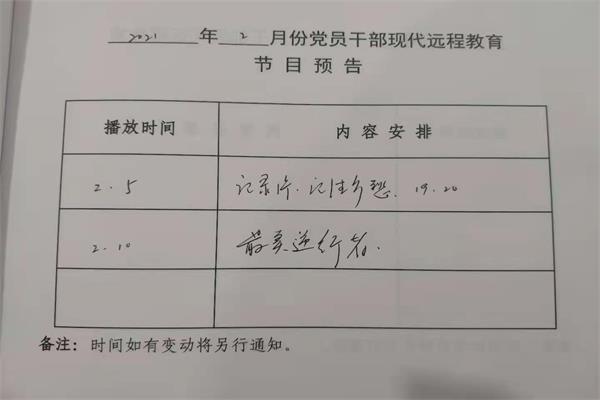 2021 年 2 月份党员干部现代远程教育
节目预告
播放时间 内容安排
2.5 记录片.记住乡愁.19.20
2.10 最美逆行者.
备注：时间如有变动将另行通知。